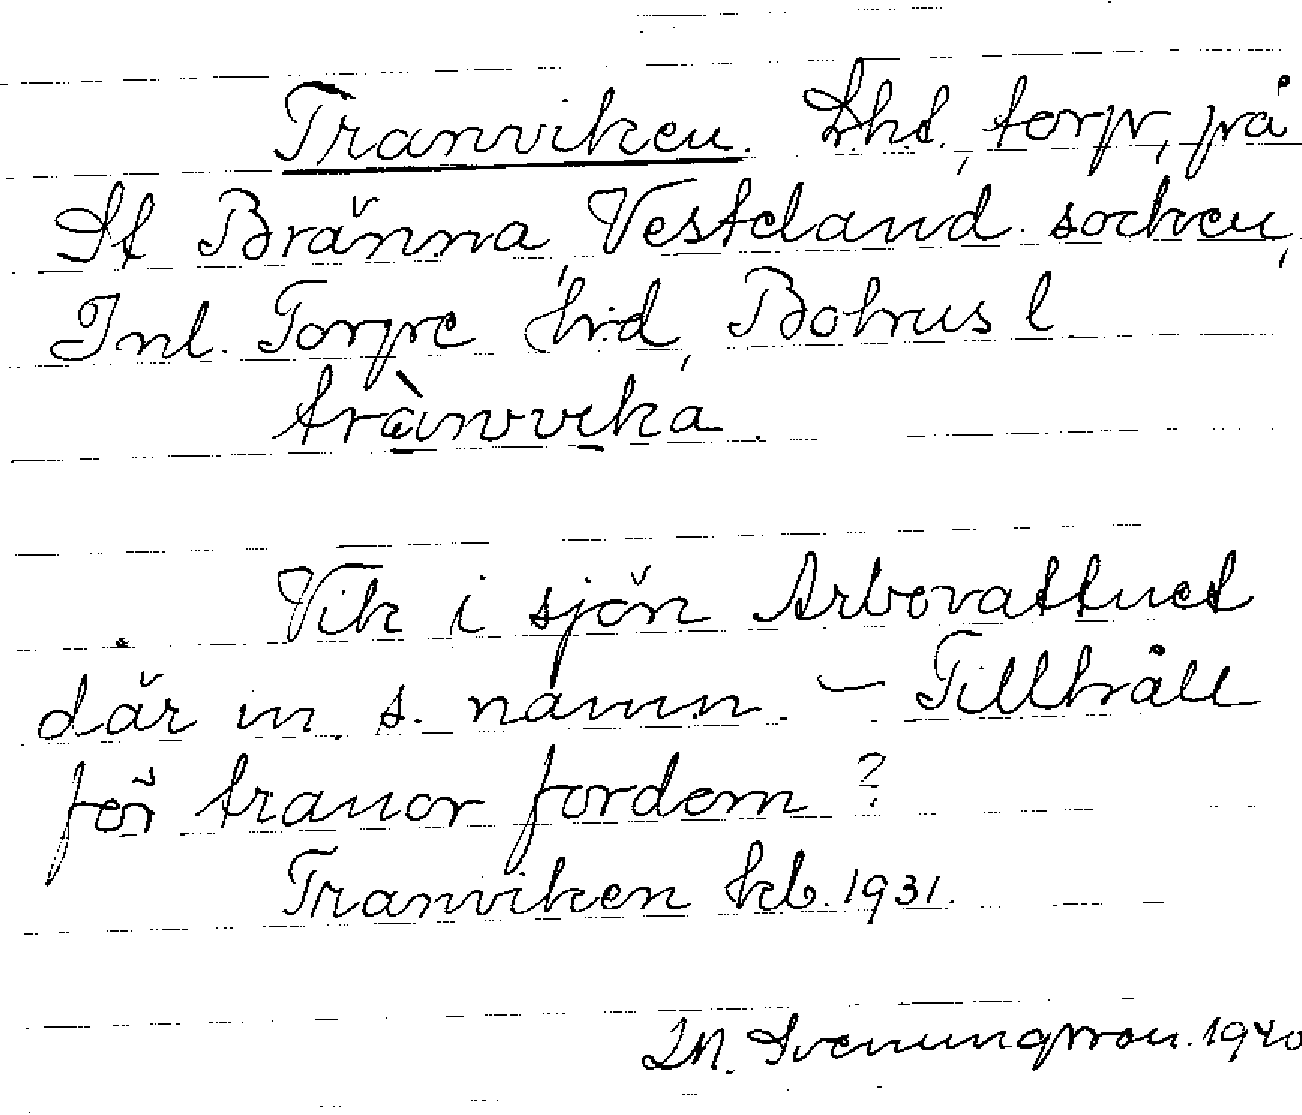 Tranviken. Lht., torp, på
St Bränna, Vesteland. socken,
Inl. Torpe hrd, Bohus l
trànvika.
Vik i sjön Arbovattnet
där m. s. namn. – Tillhåll
för tranor fordom?
Tranviken kb. 1931.
Svenungsson. 1940